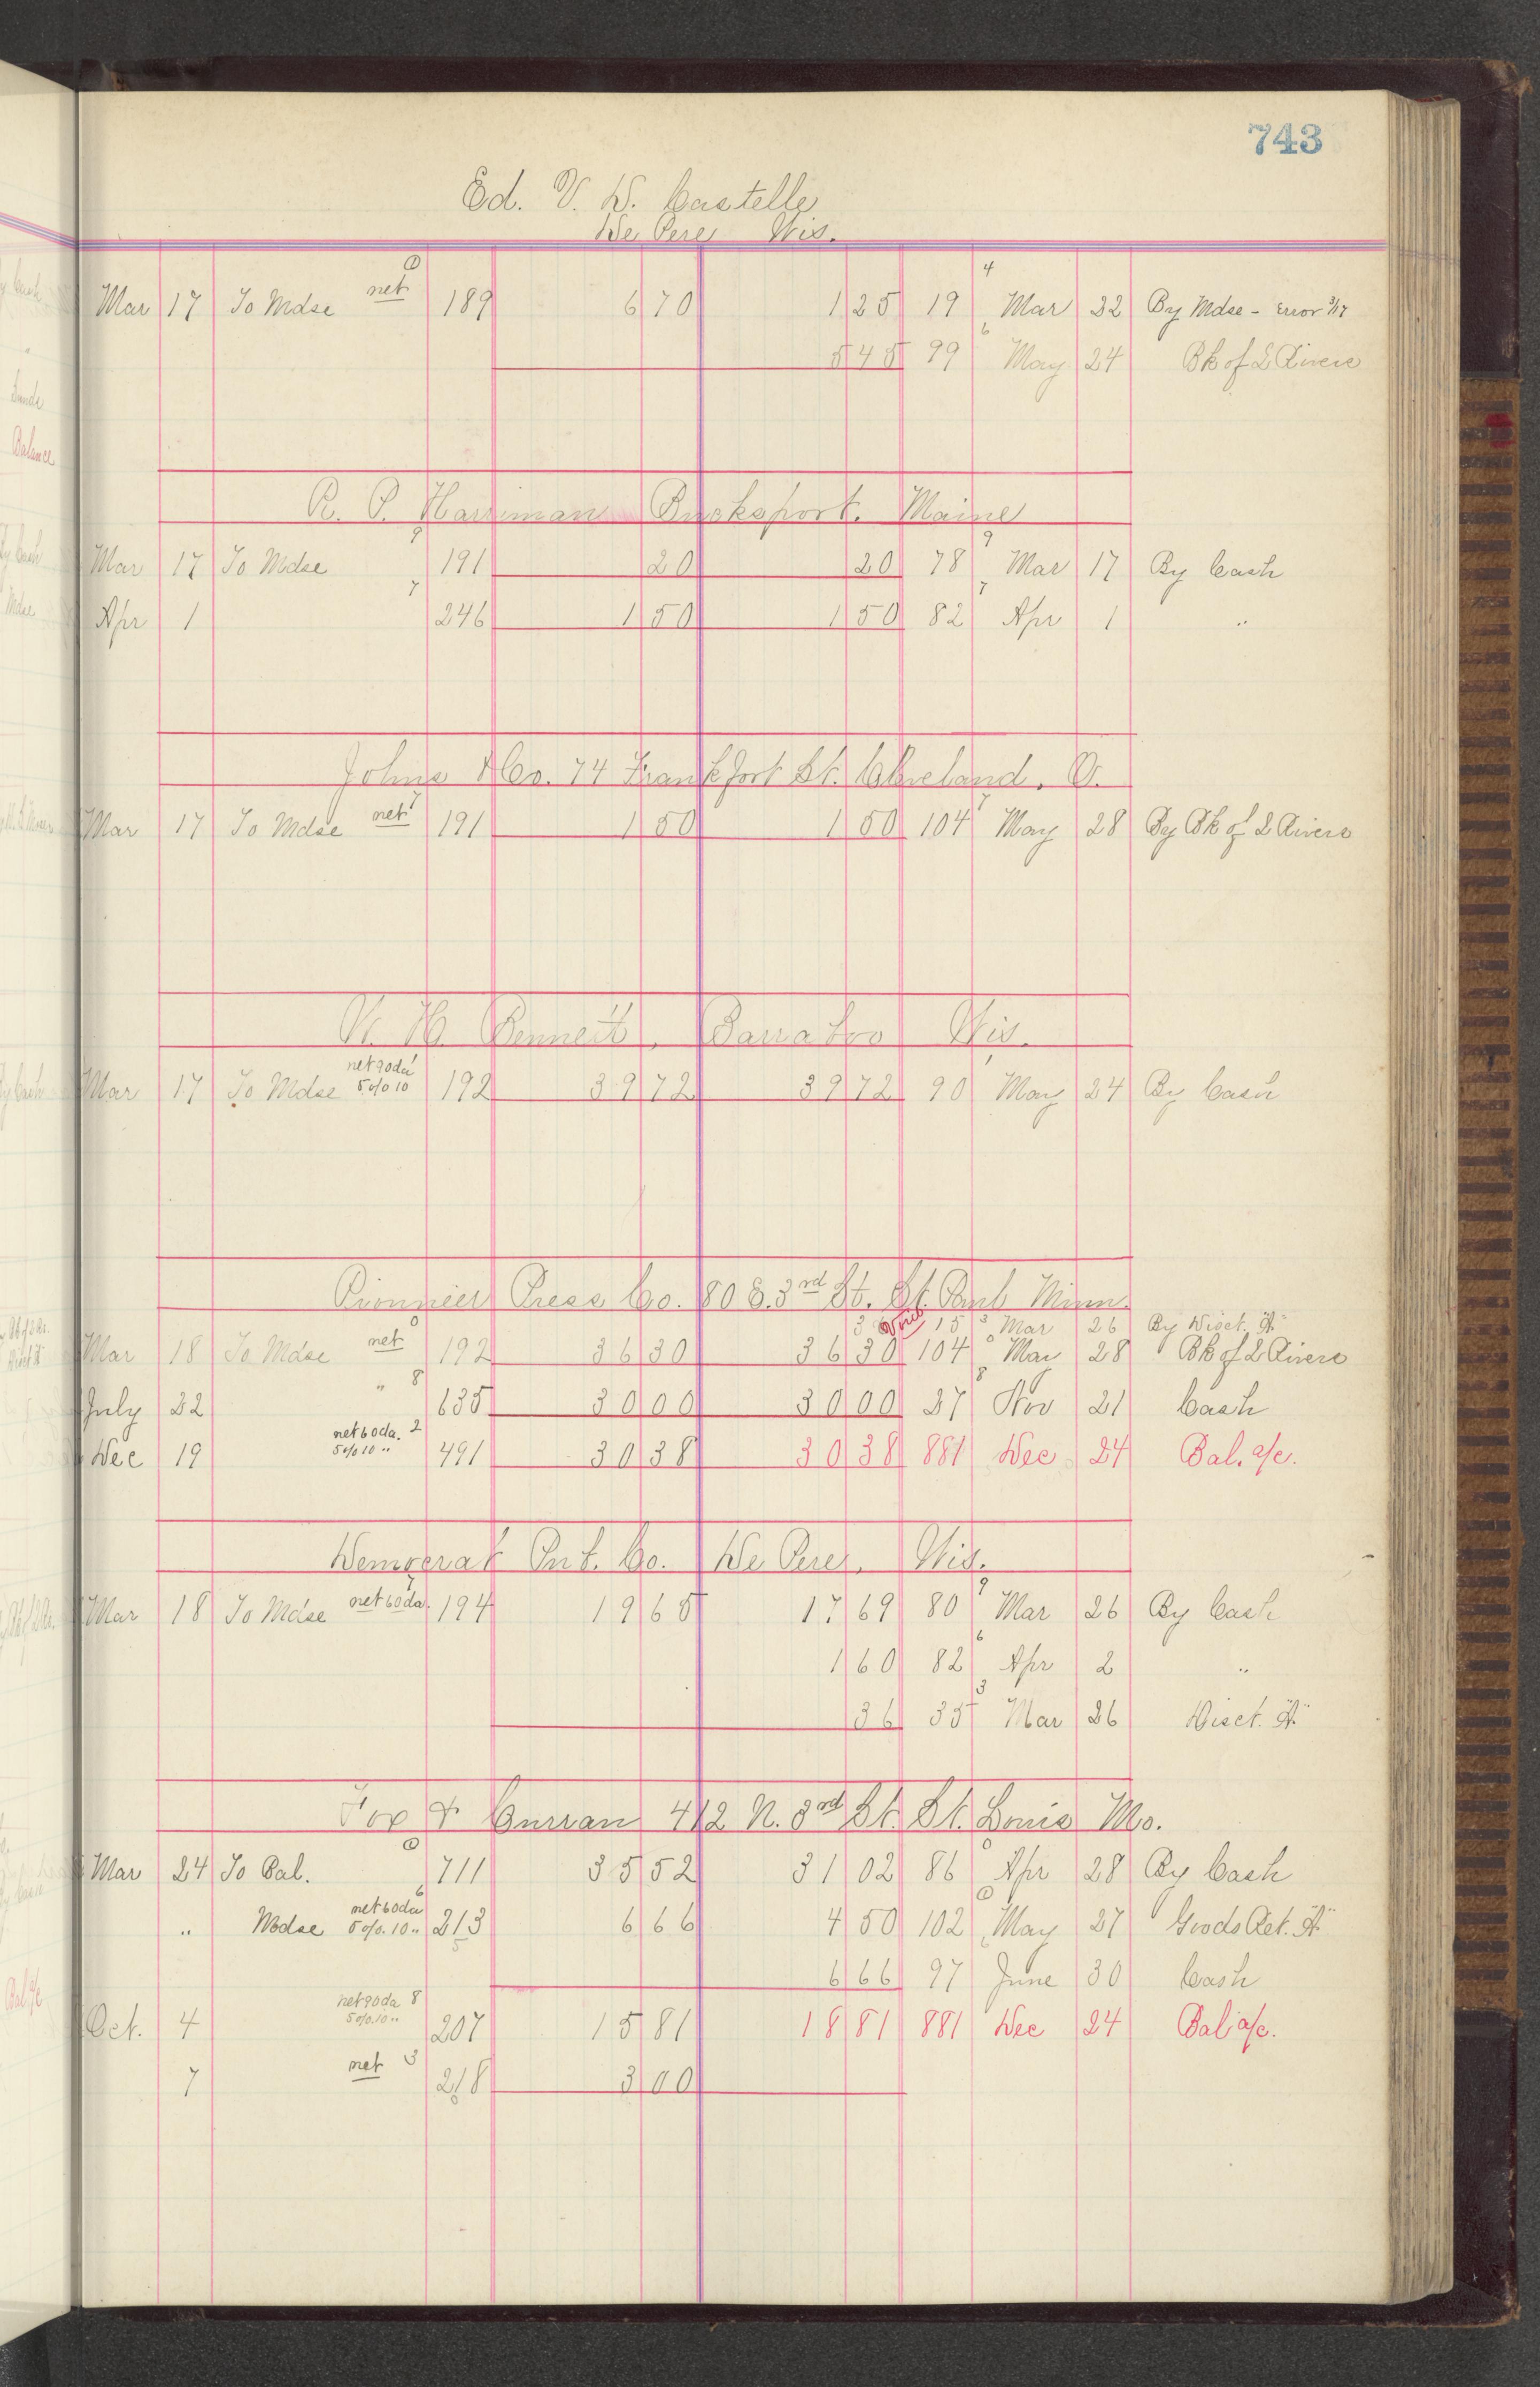 743
Ed. V. D. Casteele
De Pere Wis.
Mar 17 To Mdse net 189 6 70 1 25 19 Mar 22 By Mdse - Error 3/17
5 45 99 May 24 Bk of 2 Rivers
R. P. Harriman Bucksport. Maine
Mar 17 To Mdse 191 20 20 78 Mar 17 By Cash
Apr 1 246 1 50 1 50 82 Apr 1 "
Johns & Co. 74 Frankfort St. Cleveland. O.
Mar 17 To Mdse net 191 1 50 1 50 104 May 28 By Bk of 2 Rivers
H. Bennett, Barraboo Wis.
Mar 17 To Mdse net 90 da 5% 10 192 39 72 39 72 90 May 24 By Cash
Pionneer Press Co. 80 E. 3rd St. St. Paul Minn.
15 Mar 26 By Disct. "A"
Mar 18 To Mdse net 192 36 30 36 30 104 May 28 Bk of 2 Rivers
July 22 " 635 30 00 30 00 37 Nov 21 Cash
Dec 19 net 60 da. 5% 10 " 491 30 38 30 38 881 Dec 24 Bal. a/c.
Democrat Pnt. Co. De Pere, Wis.
Mar 18 To Mdse net 60 da. 194 19 65 17 69 80 Mar 26 By Cash
1 60 82 Apr 2 "
36 35 Mar 26 Disct. "A"
Fox & Curran 412 N. 3rd St. St. Louis Mo.
Mar 24 To Bal. 711 35 52 31 02 86 Apr 28 By Cash
" Mdse net 60 da 5%. 10 " 213 6 66 4 50 102 May 27 Goods Ret. "A"
6 66 97 June 30 Cash
Oct. 4 net 90 da 5%. 10 " 207 15 81 18 81 881 Dec 24 Bal a/c.
7 net 218 3 00